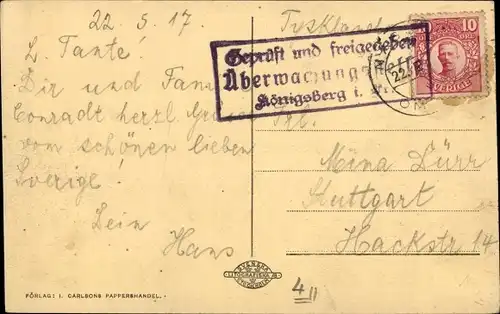 22 5. 17
L. Tante!
Dir und Fam.
Conradt herzl. Grüsse
vom schönen lieben
Sverige.
Dein
Hans
Tyskland
Geprüft und freigegeben
Überwachungs
Königsberg i. Pr.
10
ÖRE
SVERIGE
22.5
Frl.
Mina Dürr
Stuttgart
Hackstr 14
4 II
SVENSKA
LITOGRAFISKA
FÖRLAG: I. CARLSONS PAPPERSHANDEL.